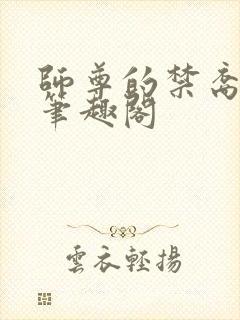 師尊的禁脔
筆趣閣
雲衣輕揚